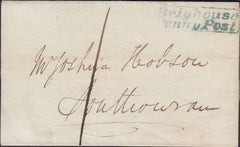 Brighouse
Penny Post
Mr Joshua Hobson
Southowram
1